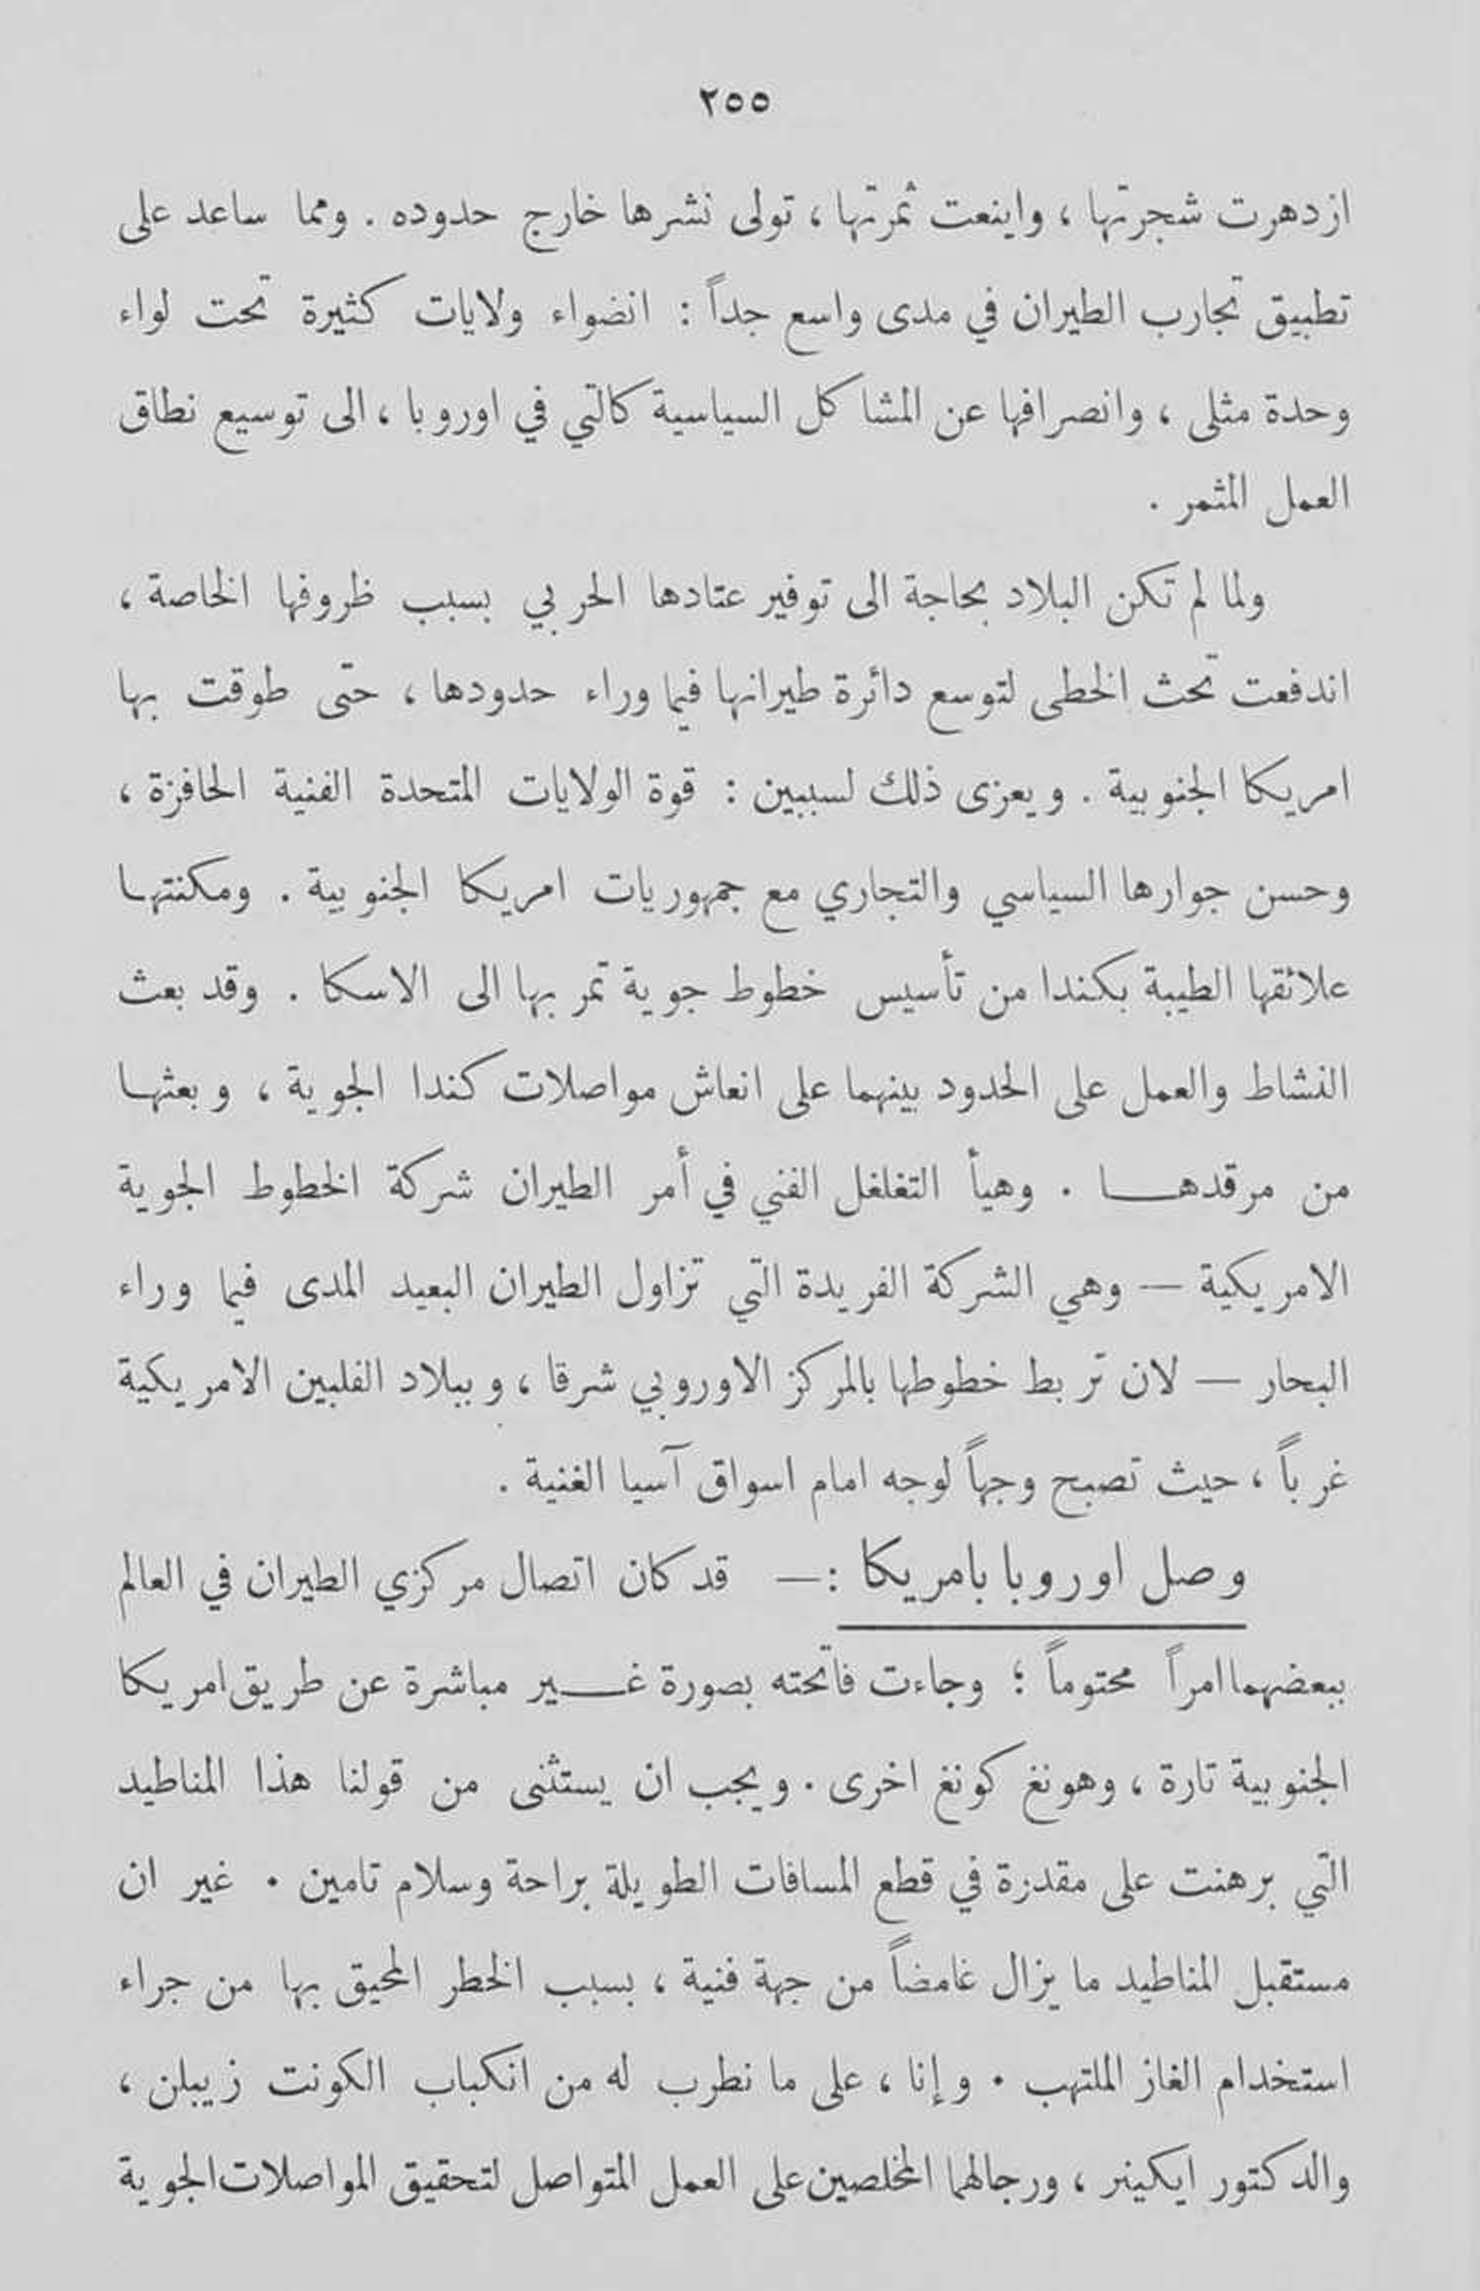 ٢٥٥
ازدهرت شجرتها ، واينعت ثمرتها ، تولى نشرها خارج حدوده . ومما ساعد على
تطبيق تجارب الطيران في مدى واسع جداً : انضواء ولايات كثيرة تحت لواء
وحدة مثلى ، وانصرافها عن المشاكل السياسية كالتي في اوروبا ، الى توسيع نطاق
العمل المثمر .
ولما لم تكن البلاد بحاجة الى توفير عتادها الحربي بسبب ظروفها الخاصة ،
اندفعت تحث الخطى لتوسع دائرة طيرانها فيما وراء حدودها ، حتى طوقت بها
امريكا الجنوبية . ويعزى ذلك لسببين : قوة الولايات المتحدة الفنية الحافزة ،
وحسن جوارها السياسي والتجاري مع جمهوريات امريكا الجنوبية . ومكنتها
علائقها الطيبة بكندا من تأسيس خطوط جوية تمر بها الى الاسكا . وقد بعث
النشاط والعمل على الحدود بينهما على انعاش مواصلات كندا الجوية ، وبعثها
من مرقدهــا . وهيأ التغلغل الفني في أمر الطيران شركة الخطوط الجوية
الامريكية — وهي الشركة الفريدة التي تزاول الطيران البعيد المدى فيما وراء
البحار — لان تربط خطوطها بالمركز الاوروبي شرقا ، وببلاد الفلبين الامريكية
غرباً ، حيث تصبح وجهاً لوجه امام اسواق آسيا الغنية .
وصل اوروبا بامريكا :— قد كان اتصال مركزي الطيران في العالم
ببعضهما امراً محتوماً ؛ وجاءت فاتحته بصورة غــير مباشرة عن طريق امريكا
الجنوبية تارة ، وهونغ كونغ اخرى . ويجب ان يستثنى من قولنا هذا المناطيد
التي برهنت على مقدرة في قطع المسافات الطويلة براحة وسلام تامين . غير ان
مستقبل المناطيد ما يزال غامضاً من جهة فنية ، بسبب الخطر المحيق بها من جراء
استخدام الغاز الملتهب . وإنا ، على ما نطرب له من انكباب الكونت زيبلن ،
والدكتور ايكينر ، ورجالهما المخلصين على العمل المتواصل لتحقيق المواصلات الجوية